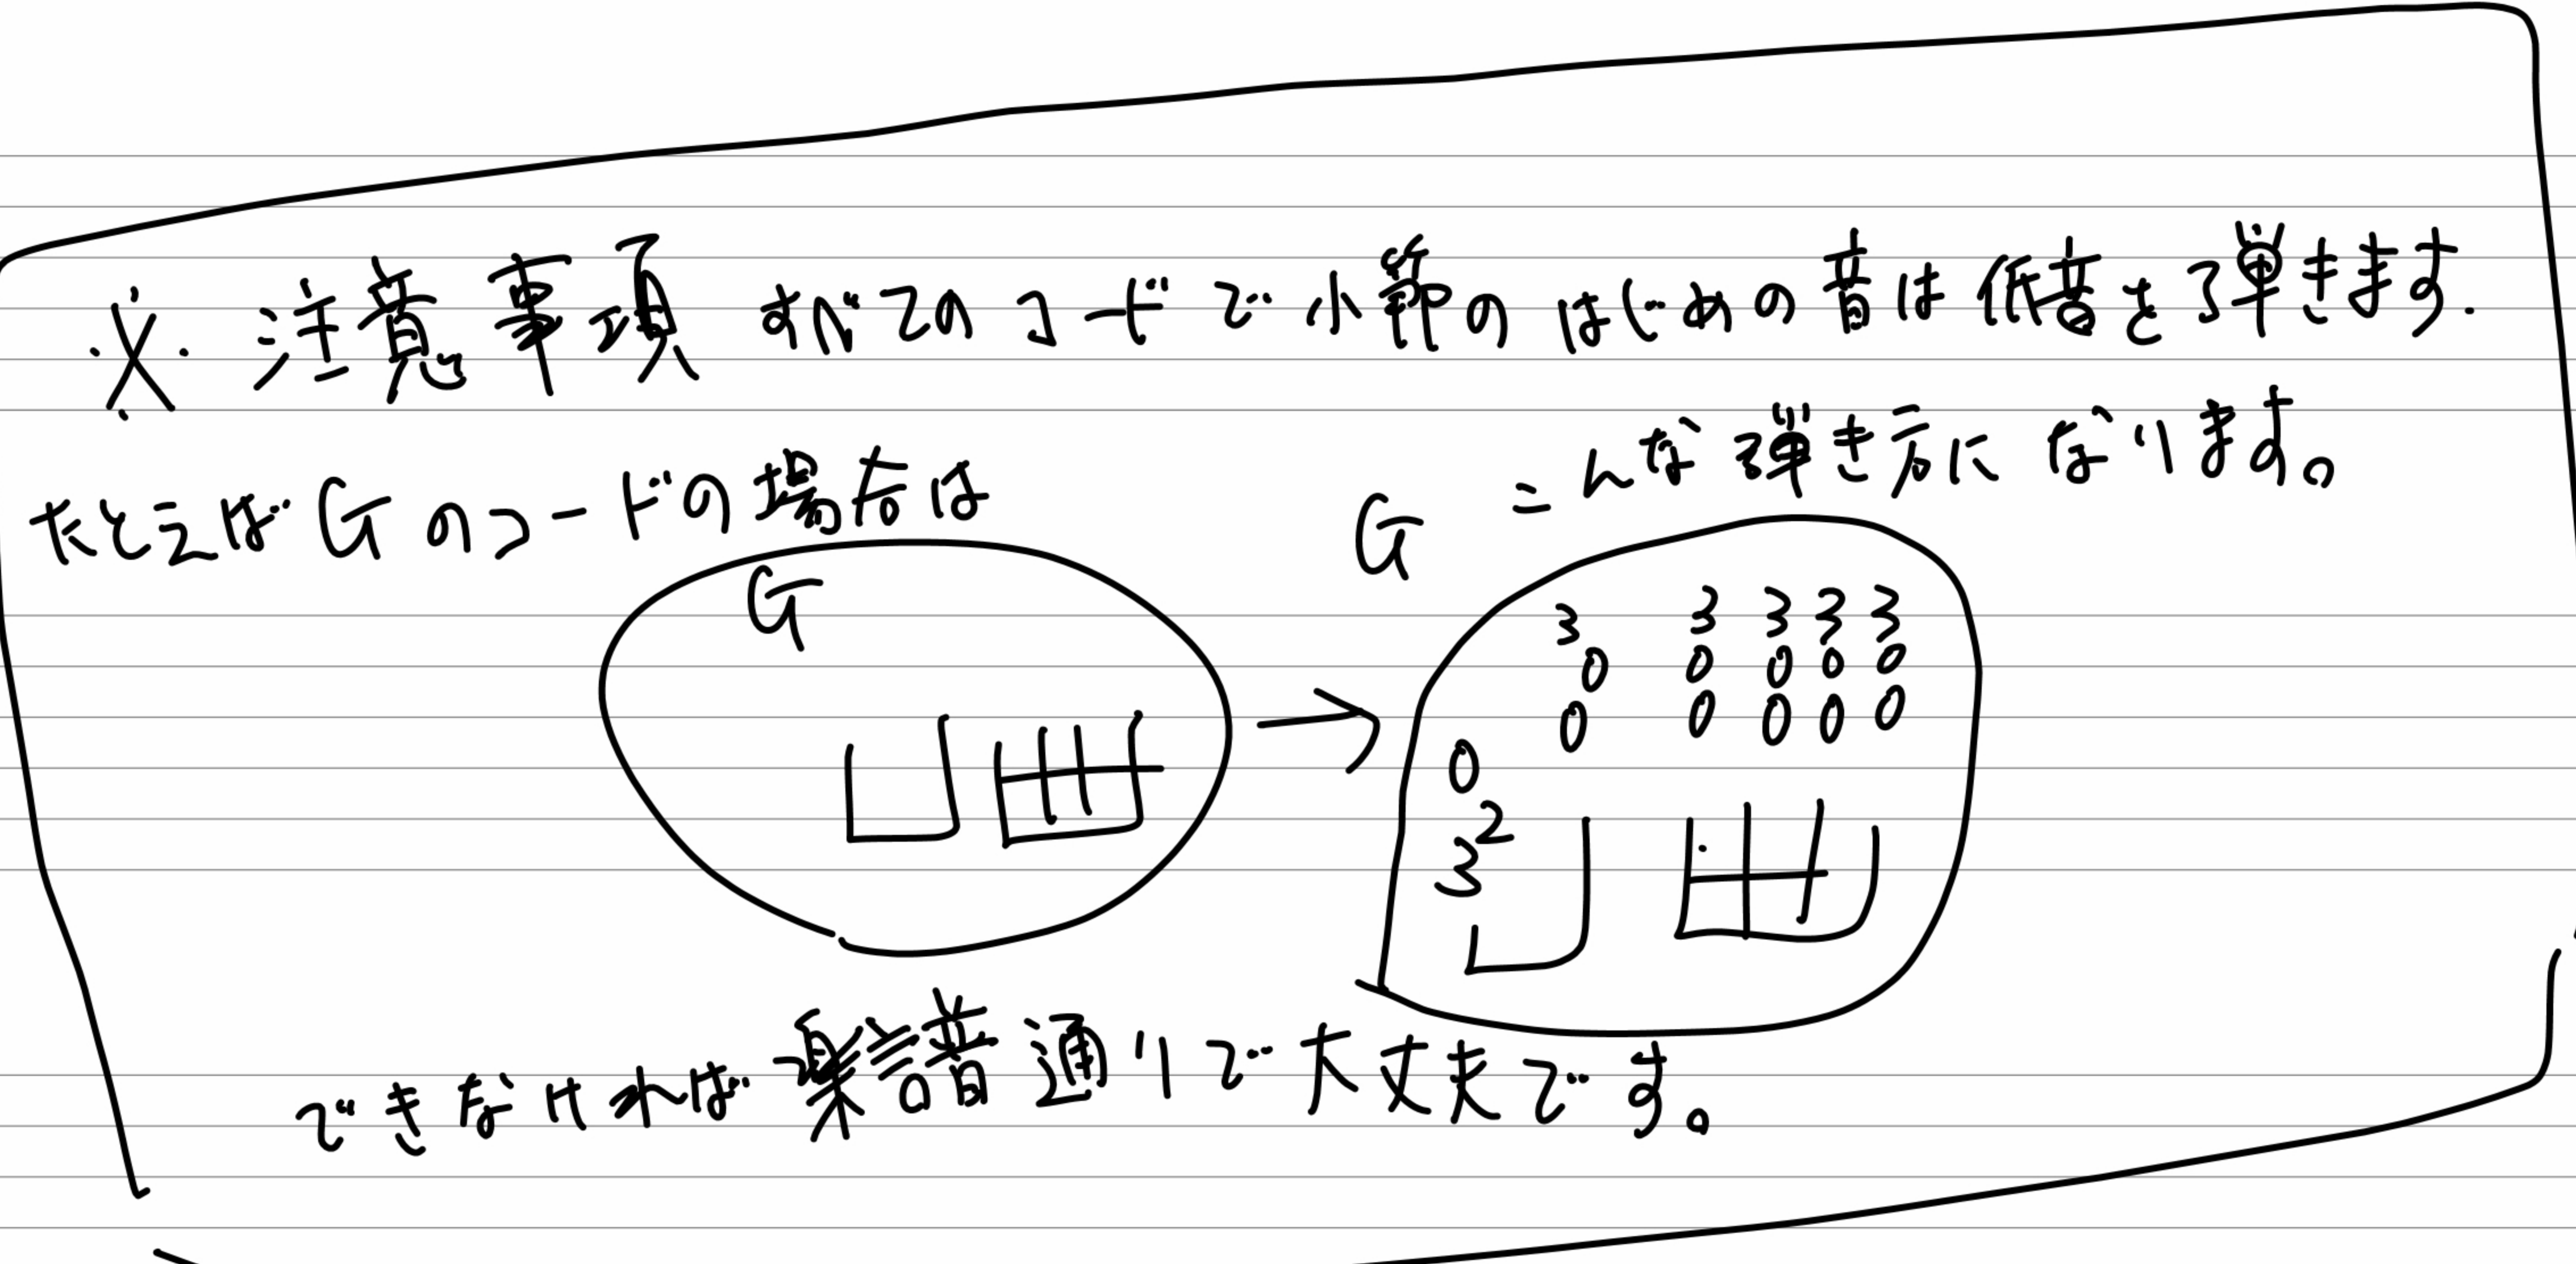 ※注意事項 すべてのコードで小節のはじめの音は低音を弾きます.
たとえばGのコードの場合は
G こんな弾き方になります。
G
3 3 3 3 3
0 0 0 0 0
0 0 0 0 0
0
2
3
できなければ楽譜通りで大丈夫です。